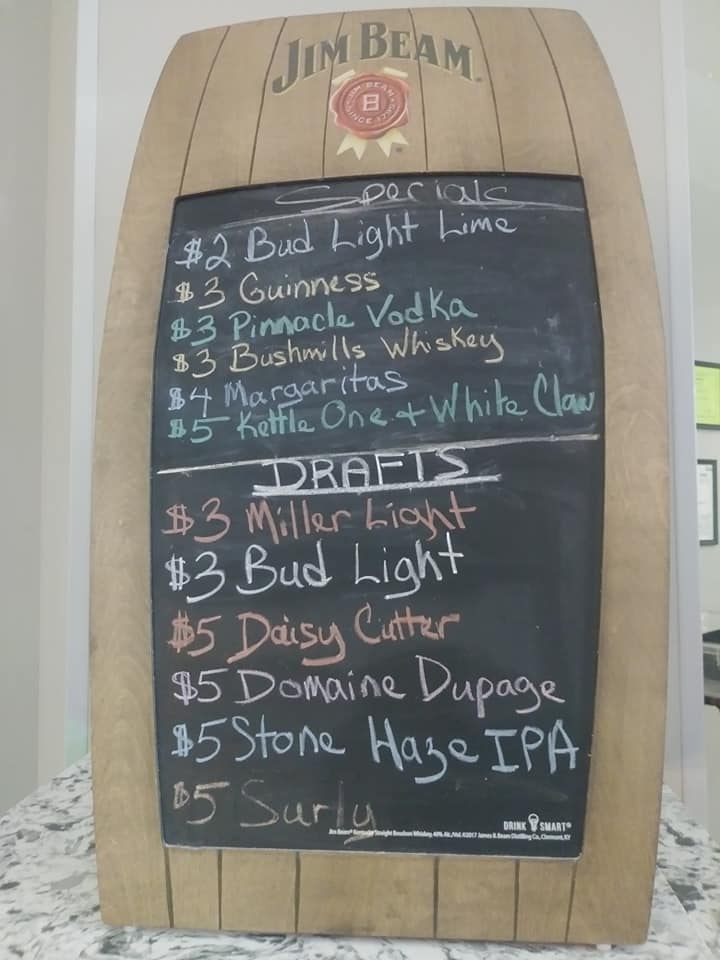 JIM BEAM
JIM BEAM
B
SINCE 1795
Specials
$2 Bud Light Lime
$3 Guinness
$3 Pinnacle Vodka
$3 Bushmills Whiskey
$4 Margaritas
$5 Kettle One + White Claw
DRAFTS
$3 Miller Light
$3 Bud Light
$5 Daisy Cutter
$5 Domaine Dupage
$5 Stone Haze IPA
$5 Surly
DRINK SMART®
Jim Beam® Kentucky Straight Bourbon Whiskey, 40% Alc./Vol. ©2017 James B. Beam Distilling Co., Clermont, KY